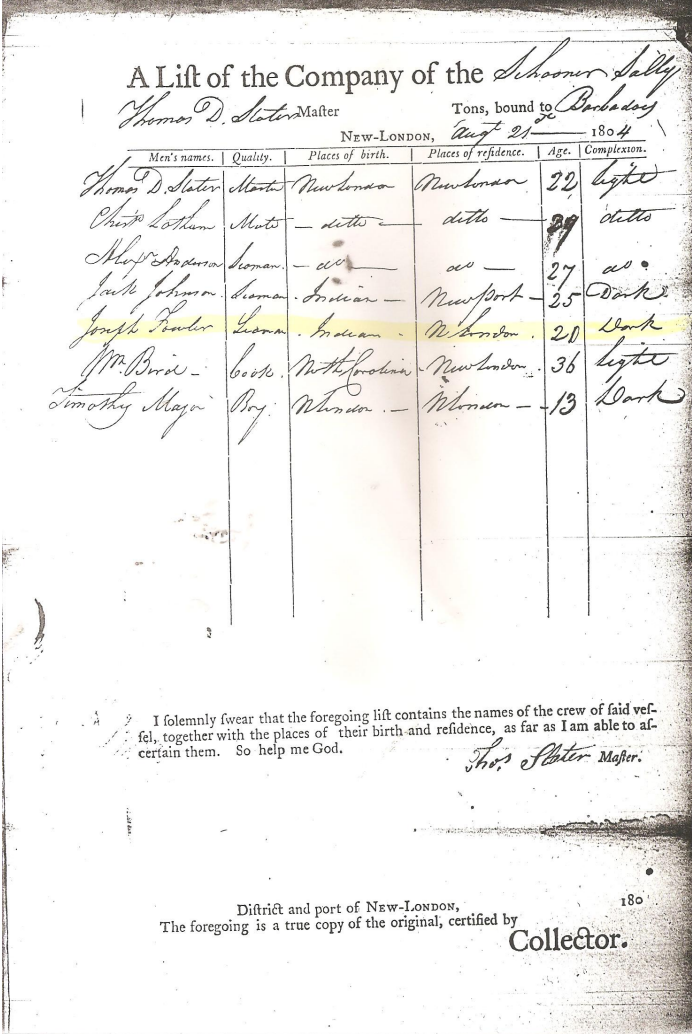 A Liſt of the Company of the Schooner Sally
Thomas D. Slater Maſter Tons, bound to Barbadoes
New-London, Augt 21st 1804
Men's names. Quality. Places of birth. Places of reſidence. Age. Complexion.
Thomas D. Slater Master New London New London 22 Light
Christ Latham Mate ditto ditto ditto
Anderson Seaman do do 27 do
Jack Johnson Seaman Indian Newport 25 Dark
Joseph Fowler Seaman Indian N London 20 Dark
Wm Bird Cook North Carolina New London 36 Light
Timothy Major Boy N London N London 13 Dark
I ſolemnly ſwear that the foregoing liſt contains the names of the crew of ſaid veſ-
ſel, together with the places of their birth and reſidence, as far as I am able to aſ-
certain them. So help me God.
Thos Slater Maſter.
180
Diſtrict and port of New-London,
The foregoing is a true copy of the original, certified by
Collector.